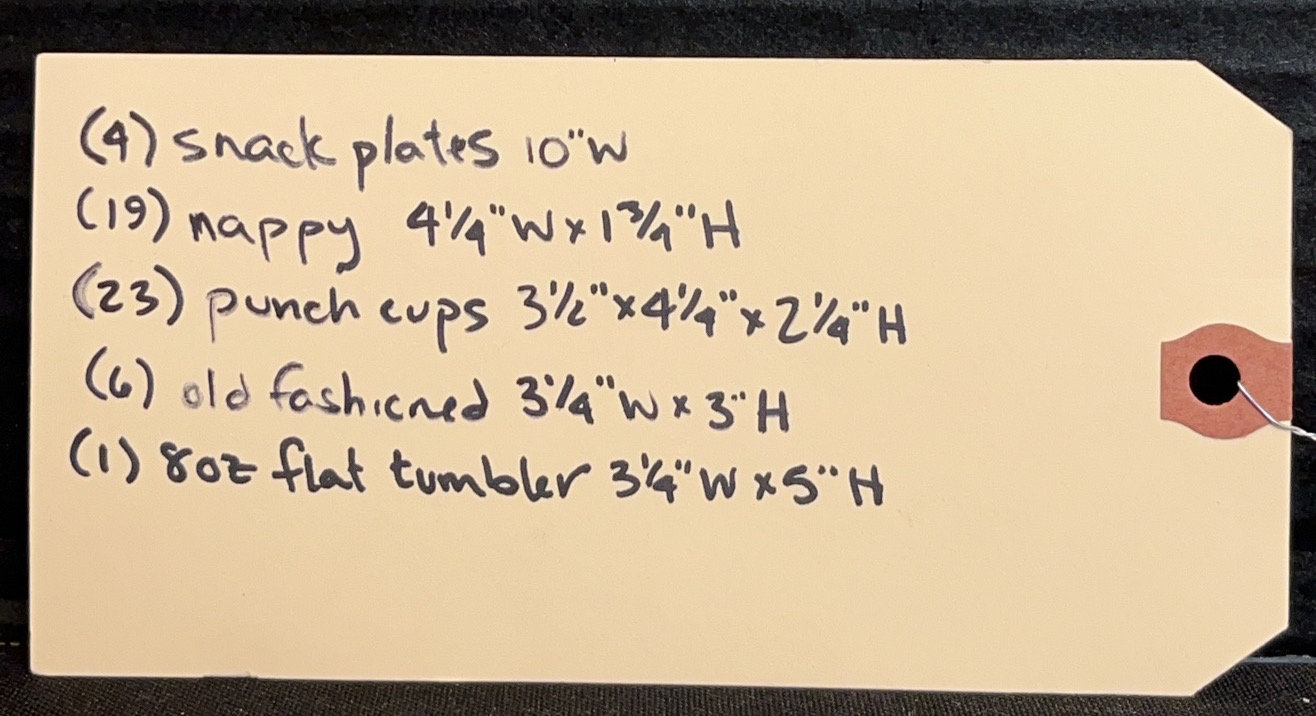 (4) snack plates 10"W
(19) nappy 4 1/4"W x 1 3/4"H
(23) punch cups 3 1/2" x 4 1/4" x 2 1/4"H
(6) old fashioned 3 1/4"W x 3"H
(1) 8oz flat tumbler 3 1/4"W x 5"H